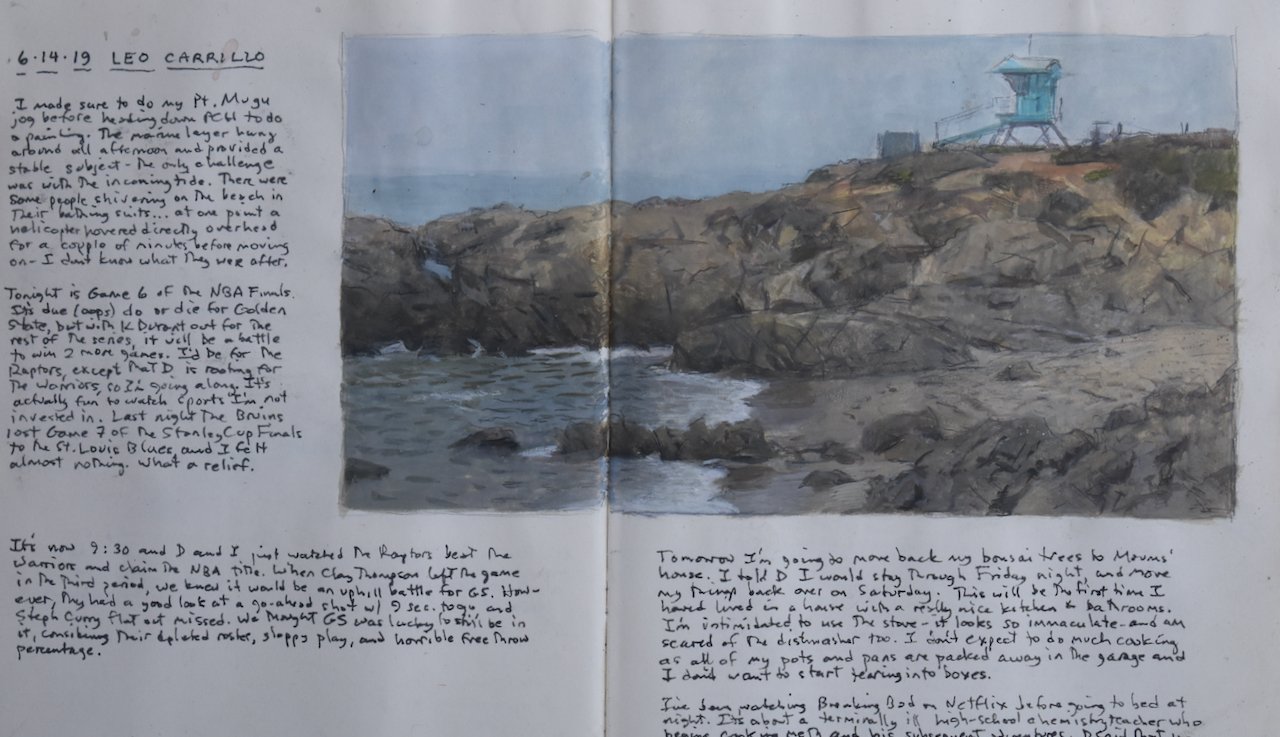 6·14·19 LEO CARRILLO
I made sure to do my Pt. Mugu
jog before heading down PCH to do
a painting. The marine layer hung
around all afternoon and provided a
stable subject - the only challenge
was with the incoming tide. There were
some people shivering on the beach in
their bathing suits... at one point a
helicopter hovered directly overhead
for a couple of minutes before moving
on - I dont know what they were after.
Tonight is Game 6 of the NBA Finals.
It's due (oops) do or die for Golden
State, but with K Durant out for the
rest of the series, it will be a battle
to win 2 more games. I'd be for the
Raptors, except that D is rooting for
the Warriors, so I'm going along. It's
actually fun to watch sports I'm not
invested in. Last night the Bruins
lost Game 7 of the Stanley Cup Finals
to the St. Louis Blues, and I felt
almost nothing. What a relief.
It's now 9:30 and D and I just watched the Raptors beat the
Warriors and claim the NBA title. When Clay Thompson left the game
in the third period, we knew it would be an uphill battle for GS. How-
ever, they had a good look at a go-ahead shot w/ 9 sec. to go, and
Steph Curry flat out missed. We thought GS was lucky to still be in
it, considering their depleted roster, sloppy play, and horrible free throw
percentage.
Tomorrow I'm going to move back my bonsai trees to Moums'
house. I told D I would stay through Friday night, and move
my things back over on Saturday. This will be the first time I
have lived in a house with a really nice kitchen & bathrooms.
I'm intimidated to use the stove - it looks so immaculate - and am
scared of the dishwasher too. I don't expect to do much cooking
as all of my pots and pans are packed away in the garage and
I don't want to start tearing into boxes.
I've been watching Breaking Bad on Netflix before going to bed at
night. It's about a terminally ill high-school chemistry teacher who
begins cooking meth and his subsequent adventures. D said that